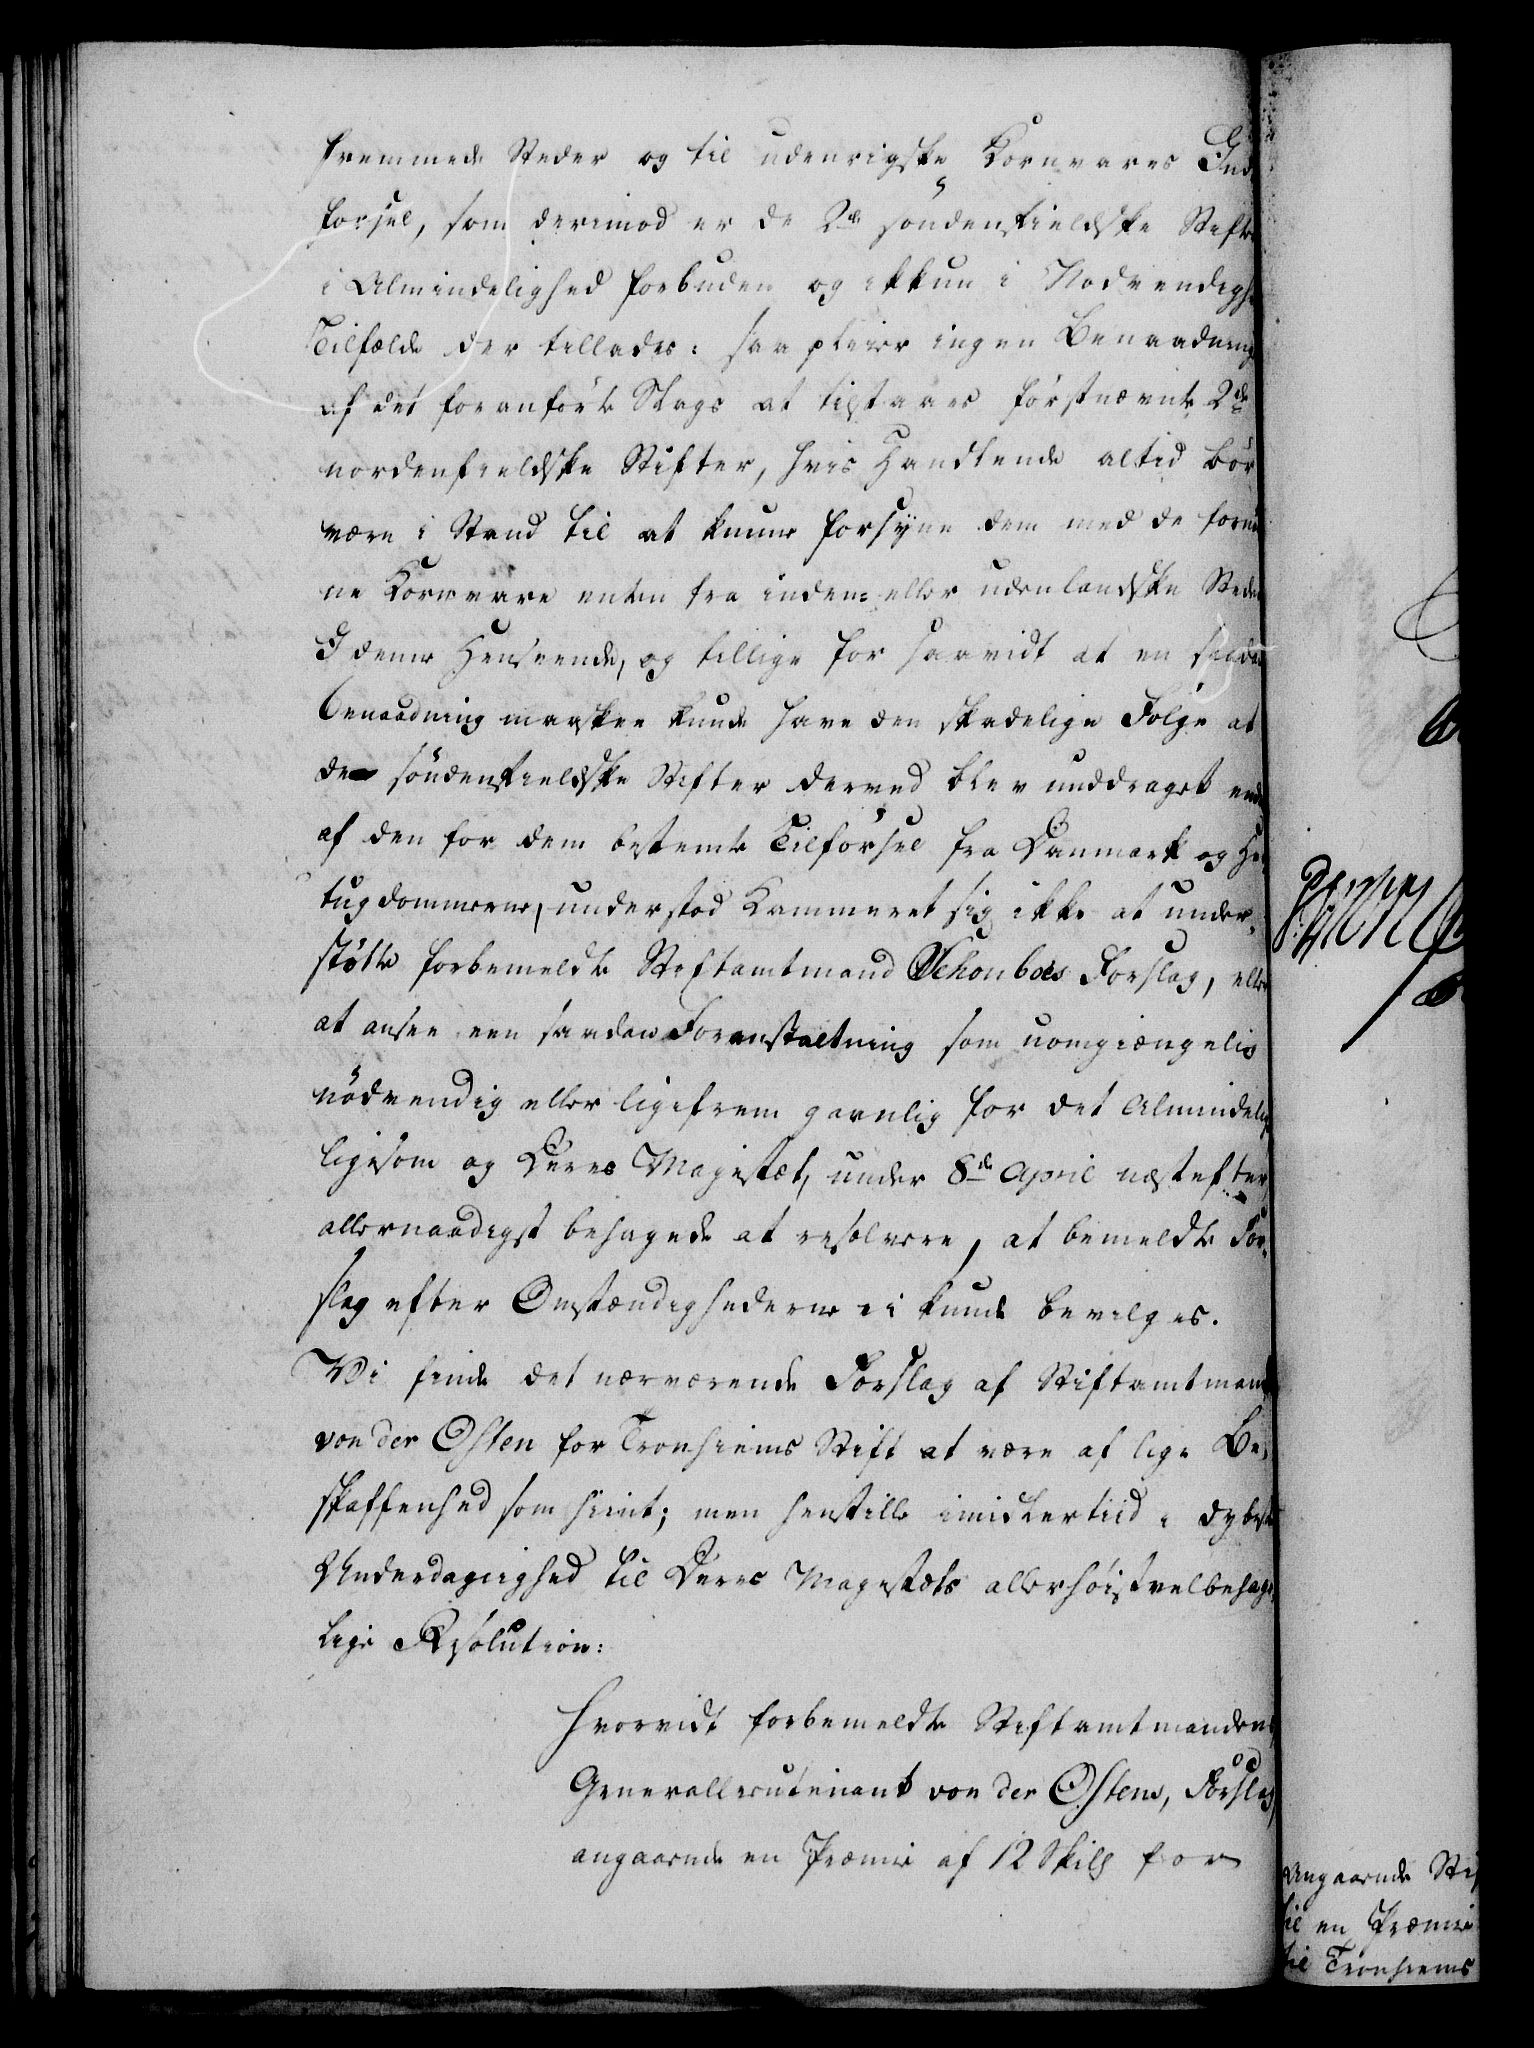 fremmede Steder og til udenrigske Kornvares Ind¬
forsel, som derimod er de 2de söndenfieldske Stifter
i Almindelighed forbuden og ikkun i Nodvendigh
Tilfælde der tillades: saa pleier ingen Benaadning
af det foranförte Slags at tilstaaes förstnævnte 2de
nordenfieldske Stifter, hvis Handlende altid bör
være i Stand til at kunne forsyne dem med de forn
ne Kornvare enten fra inden- eller udenlandske Steder
I denne Henseende, og tillige for saavidt at en saadan
benaadning maaskee kunde have den skadelige Folge at
de söndenfieldske Stifter derved blev unddraget
af den for dem bestemte Tilförsel fra Danmark og Her
tugdommerne, understod Kammeret sig ikke at under¬
støtte forbemeldte Stiftamtmand Schonboes Forslag, eller
at ansee een saadan Foranstaltning som uomgiængelig
nödvendig eller ligefrem gavnlig for det Almindelig
ligesom og Deres Majestæt, under 8de April næstefter
allernaadigst behagede at resolvere, at bemeldte For¬
slag efter Omstændighederne ei kunde bevilges.
Vi finde det nærværende Forslag af Stiftamtmand
von der Osten for Tronhiems Stift at være af lige Be¬
skaffenhed som hiint; men henstille imidlertiid i dybeste
Underdanighed til Deres Majestæts allerhöistvelbehage¬
lige Resolution:
Hvorvidt forbemeldte Stiftamtmandens
Generallieutenant von der Ostens, Forslag,
angaaende en Præmie af 12 Skill for
Angaaende Sti
til en Præmie
til Tronhiems